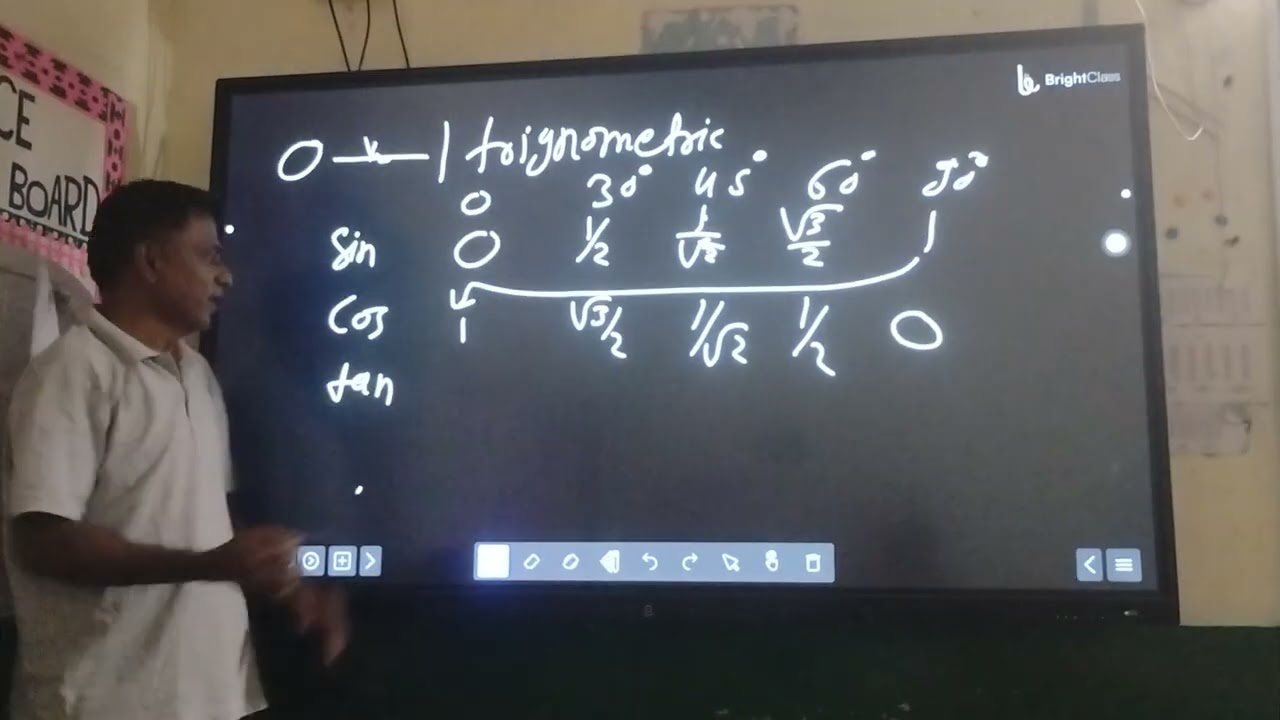 CE
BOARD
BrightClass
0 — 1 trignometric
0 30° 45° 60° 90°
Sin 0 1/2 1/√2 √3/2 1
Cos 1 √3/2 1/√2 1/2 0
tan